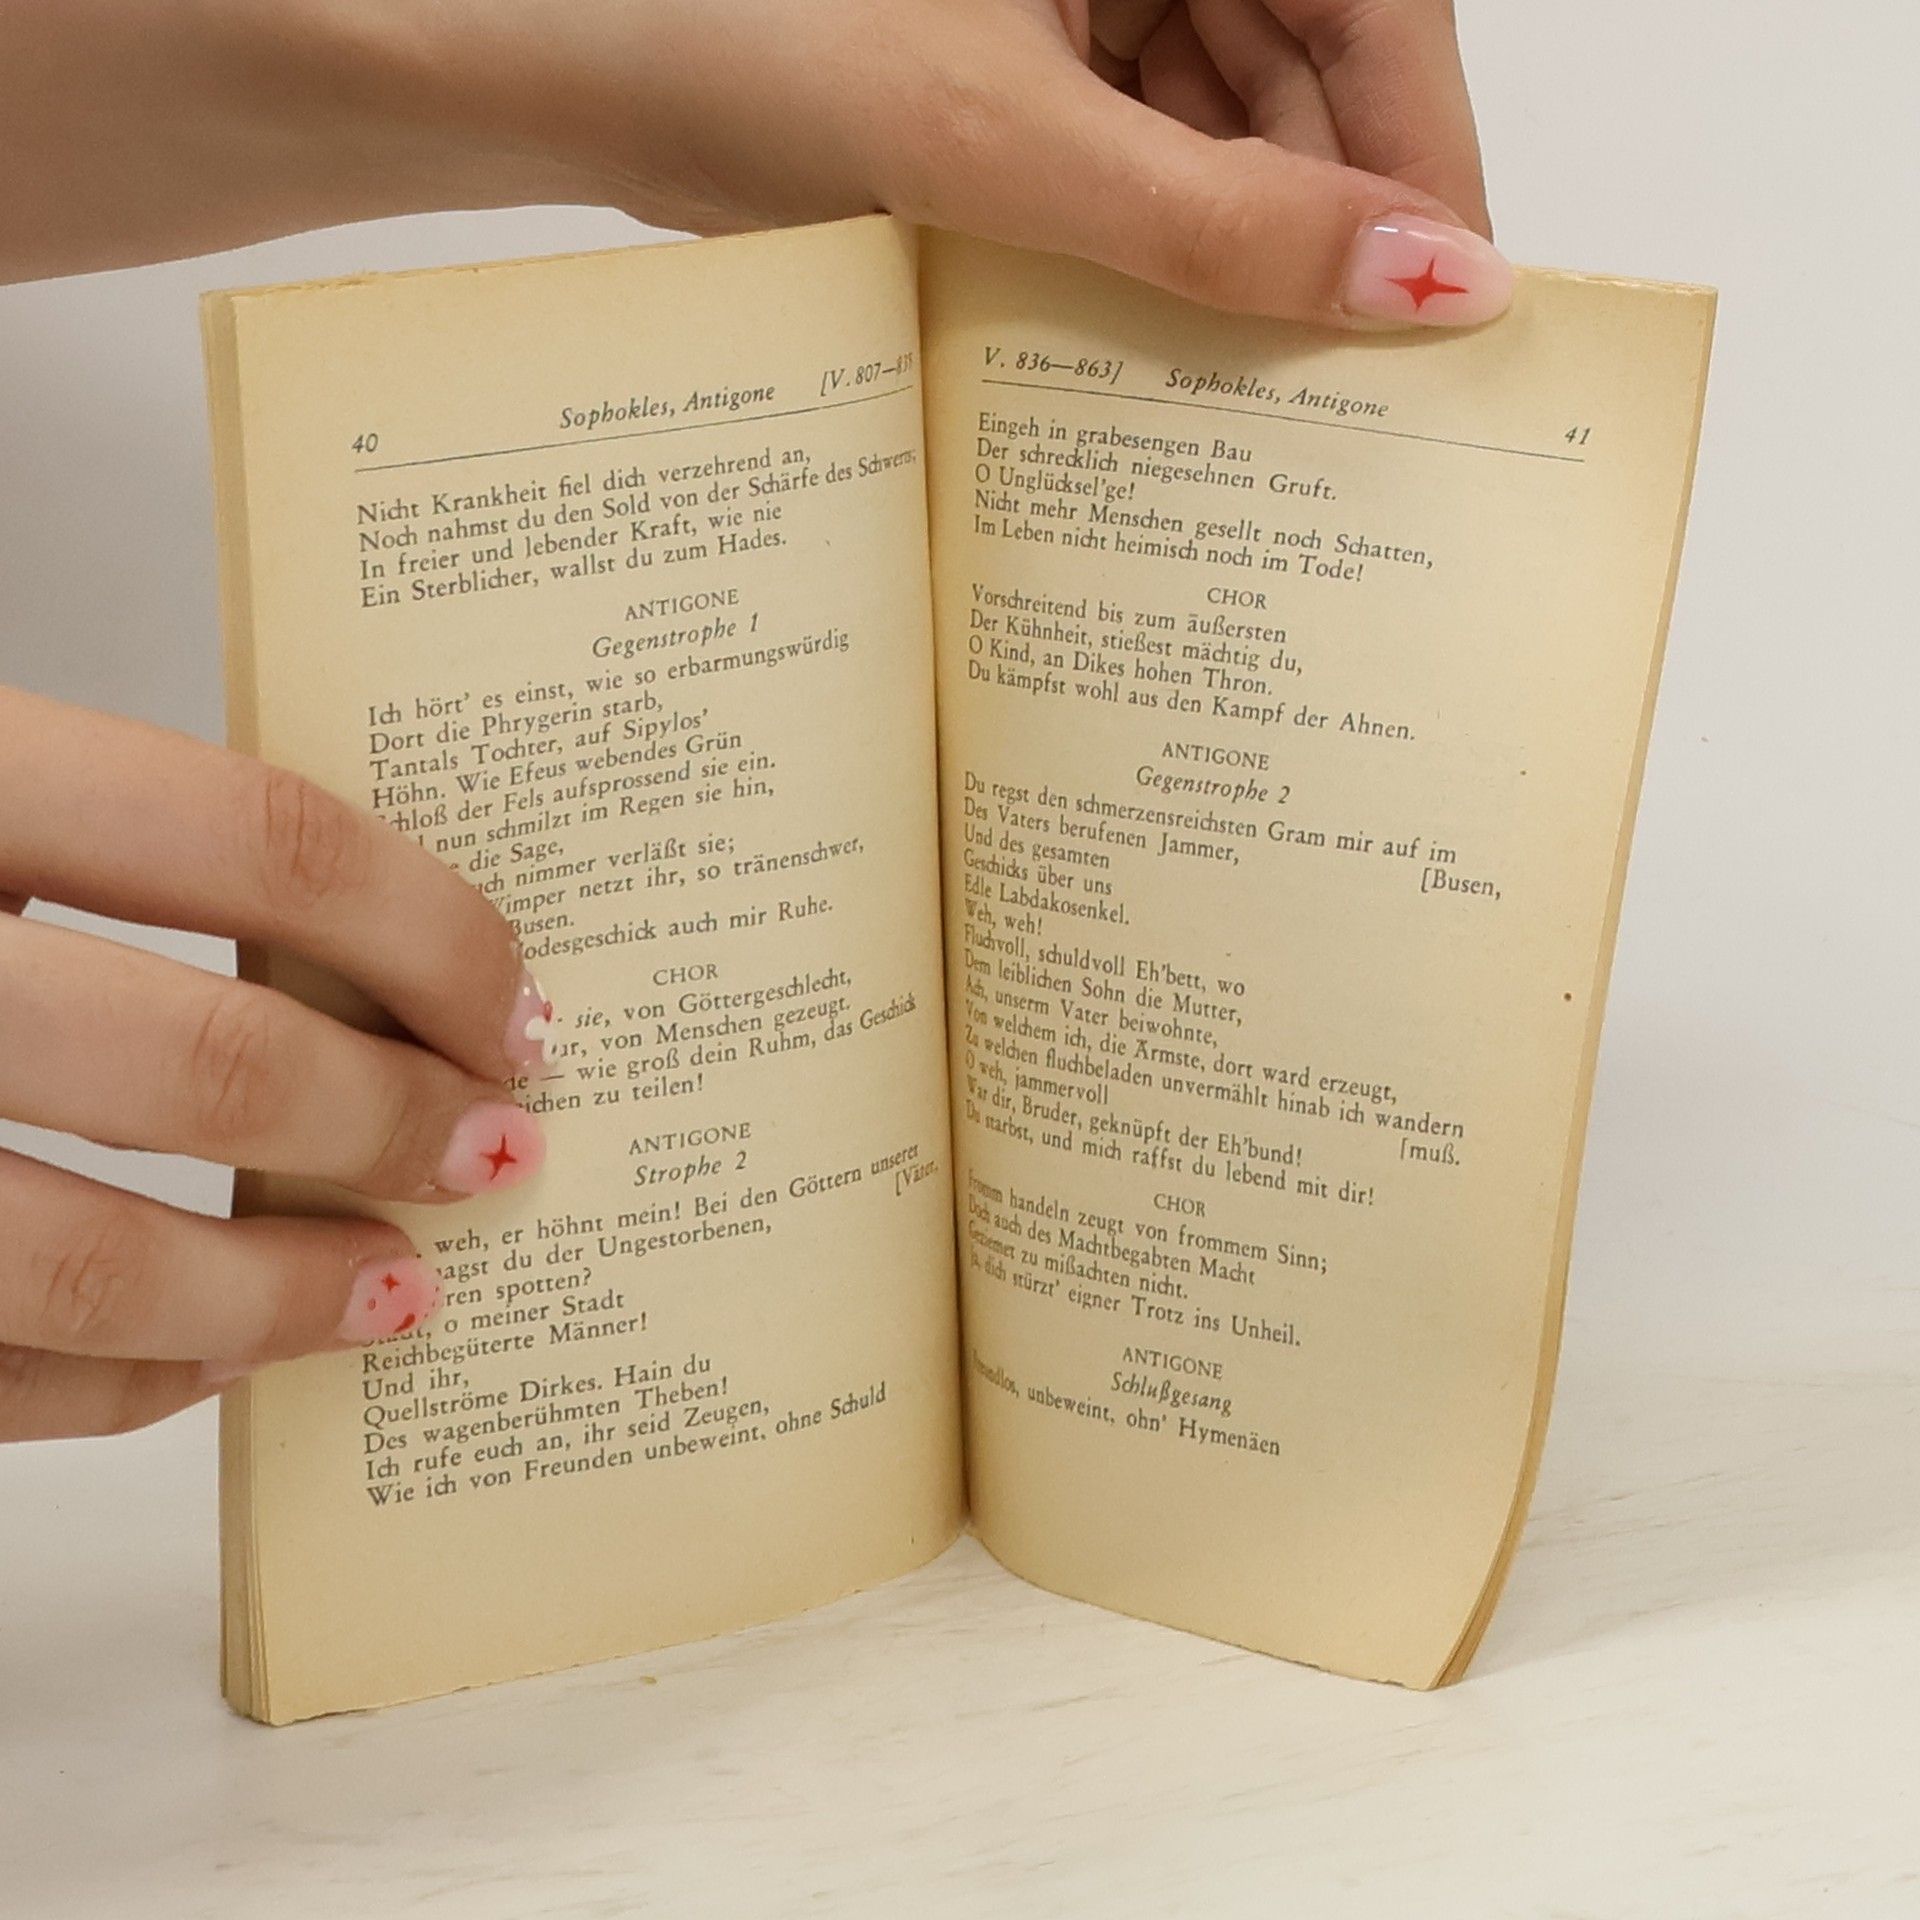 40 Sophokles, Antigone [V. 807—835
Nicht Krankheit fiel dich verzehrend an,
Noch nahmst du den Sold von der Schärfe des Schwerts;
In freier und lebender Kraft, wie nie
Ein Sterblicher, wallst du zum Hades.
ANTIGONE
Gegenstrophe 1
Ich hört' es einst, wie so erbarmungswürdig
Dort die Phrygerin starb,
Tantals Tochter, auf Sipylos'
Höhn. Wie Efeus webendes Grün
Schloß der Fels aufsprossend sie ein.
nun schmilzt im Regen sie hin,
die Sage,
nimmer verläßt sie;
Wimper netzt ihr, so tränenschwer,
Busen.
Todesgeschick auch mir Ruhe.
CHOR
sie, von Göttergeschlecht,
von Menschen gezeugt.
— wie groß dein Ruhm, das Geschick
zu teilen!
ANTIGONE
Strophe 2
weh, er höhnt mein! Bei den Göttern unserer
[Väter,
du der Ungestorbenen,
spotten?
Stadt, o meiner Stadt
Reichbegüterte Männer!
Und ihr,
Quellströme Dirkes. Hain du
Des wagenberühmten Theben!
Ich rufe euch an, ihr seid Zeugen,
Wie ich von Freunden unbeweint, ohne Schuld
V. 836—863] Sophokles, Antigone 41
Eingeh in grabesengen Bau
Der schrecklich niegesehnen Gruft.
O Unglücksel'ge!
Nicht mehr Menschen gesellt noch Schatten,
Im Leben nicht heimisch noch im Tode!
CHOR
Vorschreitend bis zum äußersten
Der Kühnheit, stießest mächtig du,
O Kind, an Dikes hohen Thron.
Du kämpfst wohl aus den Kampf der Ahnen.
ANTIGONE
Gegenstrophe 2
Du regst den schmerzensreichsten Gram mir auf im
Des Vaters berufenen Jammer, [Busen,
Und des gesamten
Geschicks über uns
Edle Labdakosenkel.
Weh, weh!
Fluchvoll, schuldvoll Eh'bett, wo
Dem leiblichen Sohn die Mutter,
Ach, unserm Vater beiwohnte,
Von welchem ich, die Ärmste, dort ward erzeugt,
Zu welchen fluchbeladen unvermählt hinab ich wandern
O weh, jammervoll [muß.
War dir, Bruder, geknüpft der Eh'bund!
Du starbst, und mich raffst du lebend mit dir!
CHOR
Fromm handeln zeugt von frommem Sinn;
Doch auch des Machtbegabten Macht
Geziemet zu mißachten nicht.
Ja, dich stürzt' eigner Trotz ins Unheil.
ANTIGONE
Schlußgesang
Freundlos, unbeweint, ohn' Hymenäen